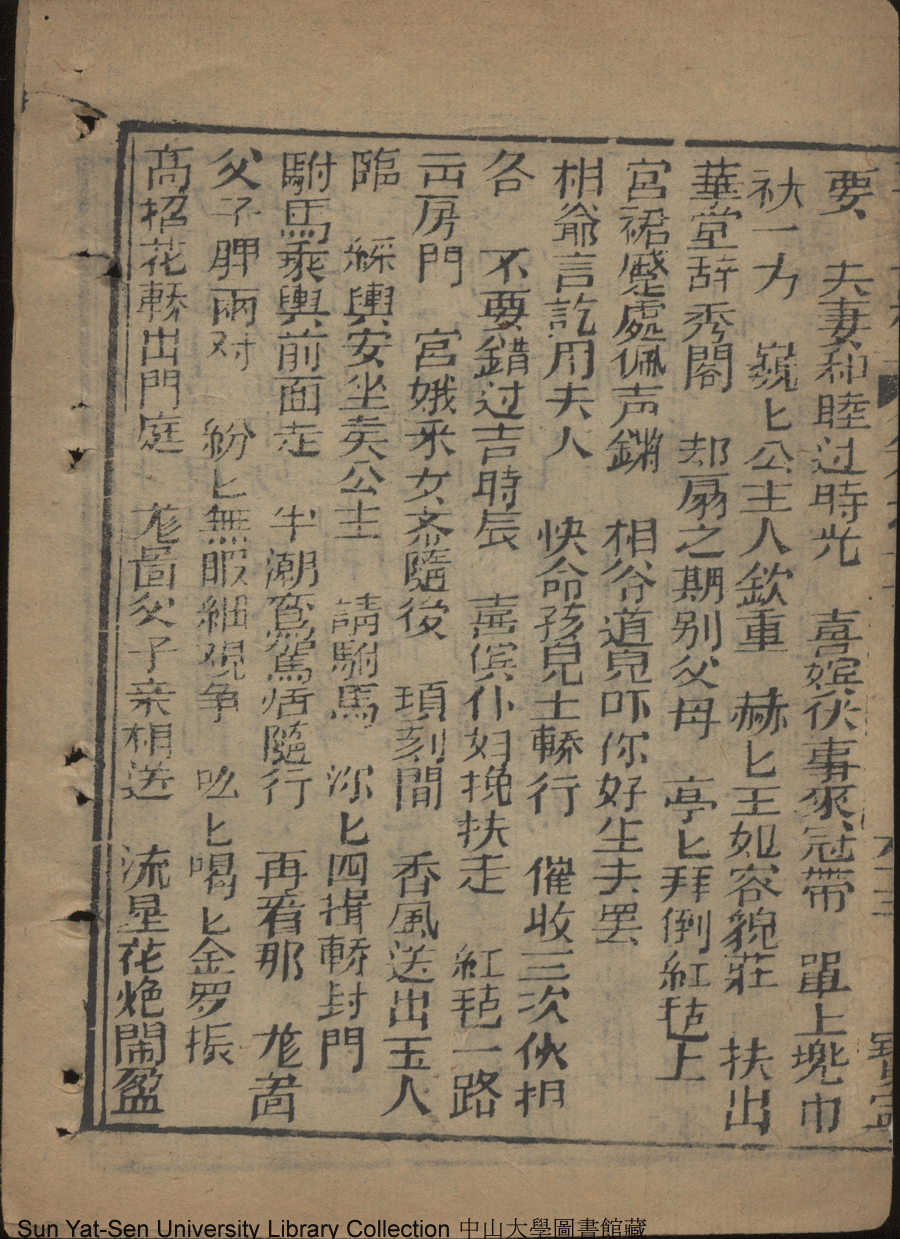 要　夫妻和睦过時光　喜嫔伏事來冠帶　單上兠巾
袂一方　巍匕公主人欽重　赫匕王如容貌莊　扶出
華堂辞秀閣　却扇之期别父母　亭匕拜倒紅毡上
宮裙蹙處佩声鏘　相爷道見吓你好生去罢
相爺言訖用夫人　快命孩兒土轎行　催收三次伙相
各　不要錯过吉時辰　喜傧仆妇挽扶走　紅毡一路
出房門　宮娥采女齐隨後　頊刻間　香風送出玉人
臨　綵輿安坐矣公主　請駙馬　深匕四揖轎封門
駙馬乘輿前面走　半潮鴛鴦恬隨行　再看那　龙啚
父子脾兩对　紛匕無暇細观争　吆匕喝匕金罗振
高招花轎出門庭　龙啚父子亲相送　流星花炮鬧盈
Sun Yat-Sen University Library Collection 中山大學圖書館藏